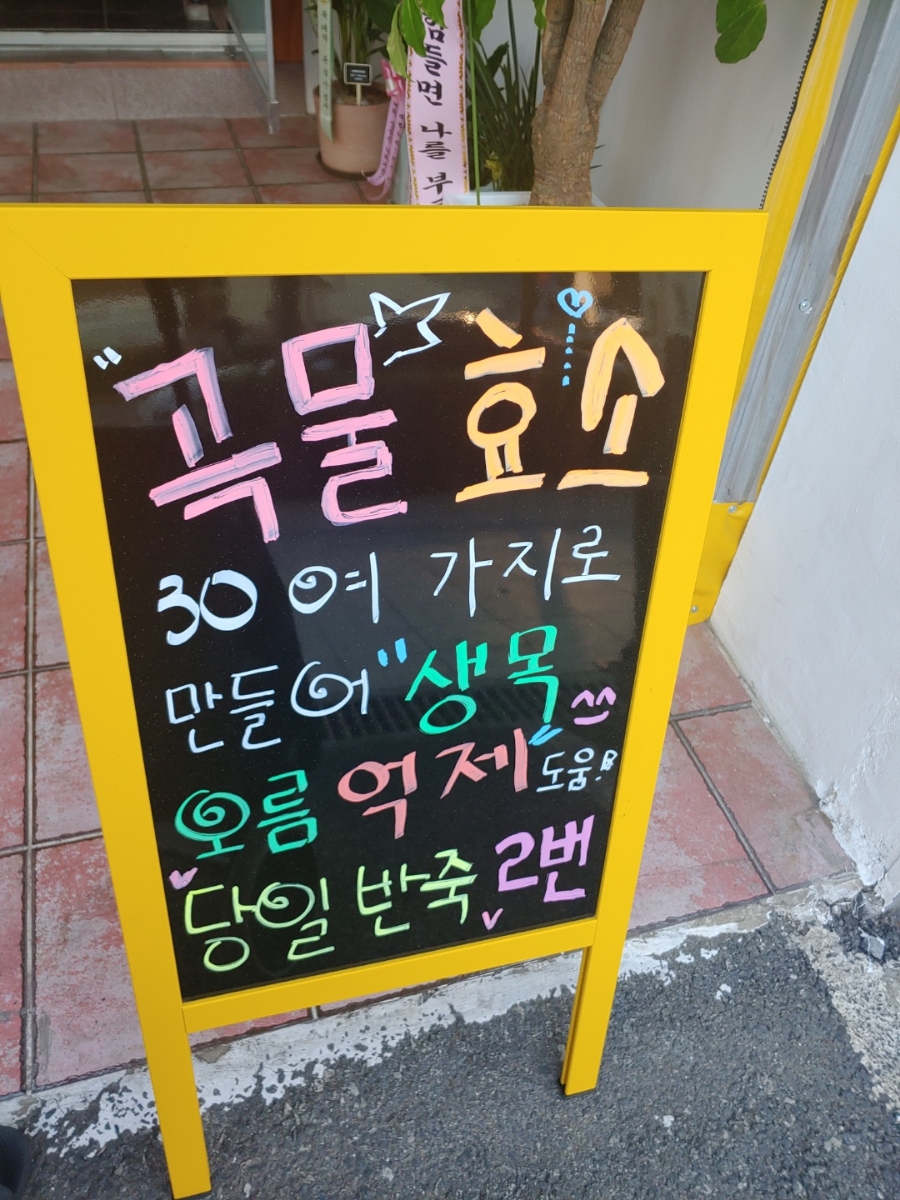 힘들면 나를 부
"곡물 효소
30 여 가지로
만들어 "생목
오름 억제" 도움!
당일 반죽 2번